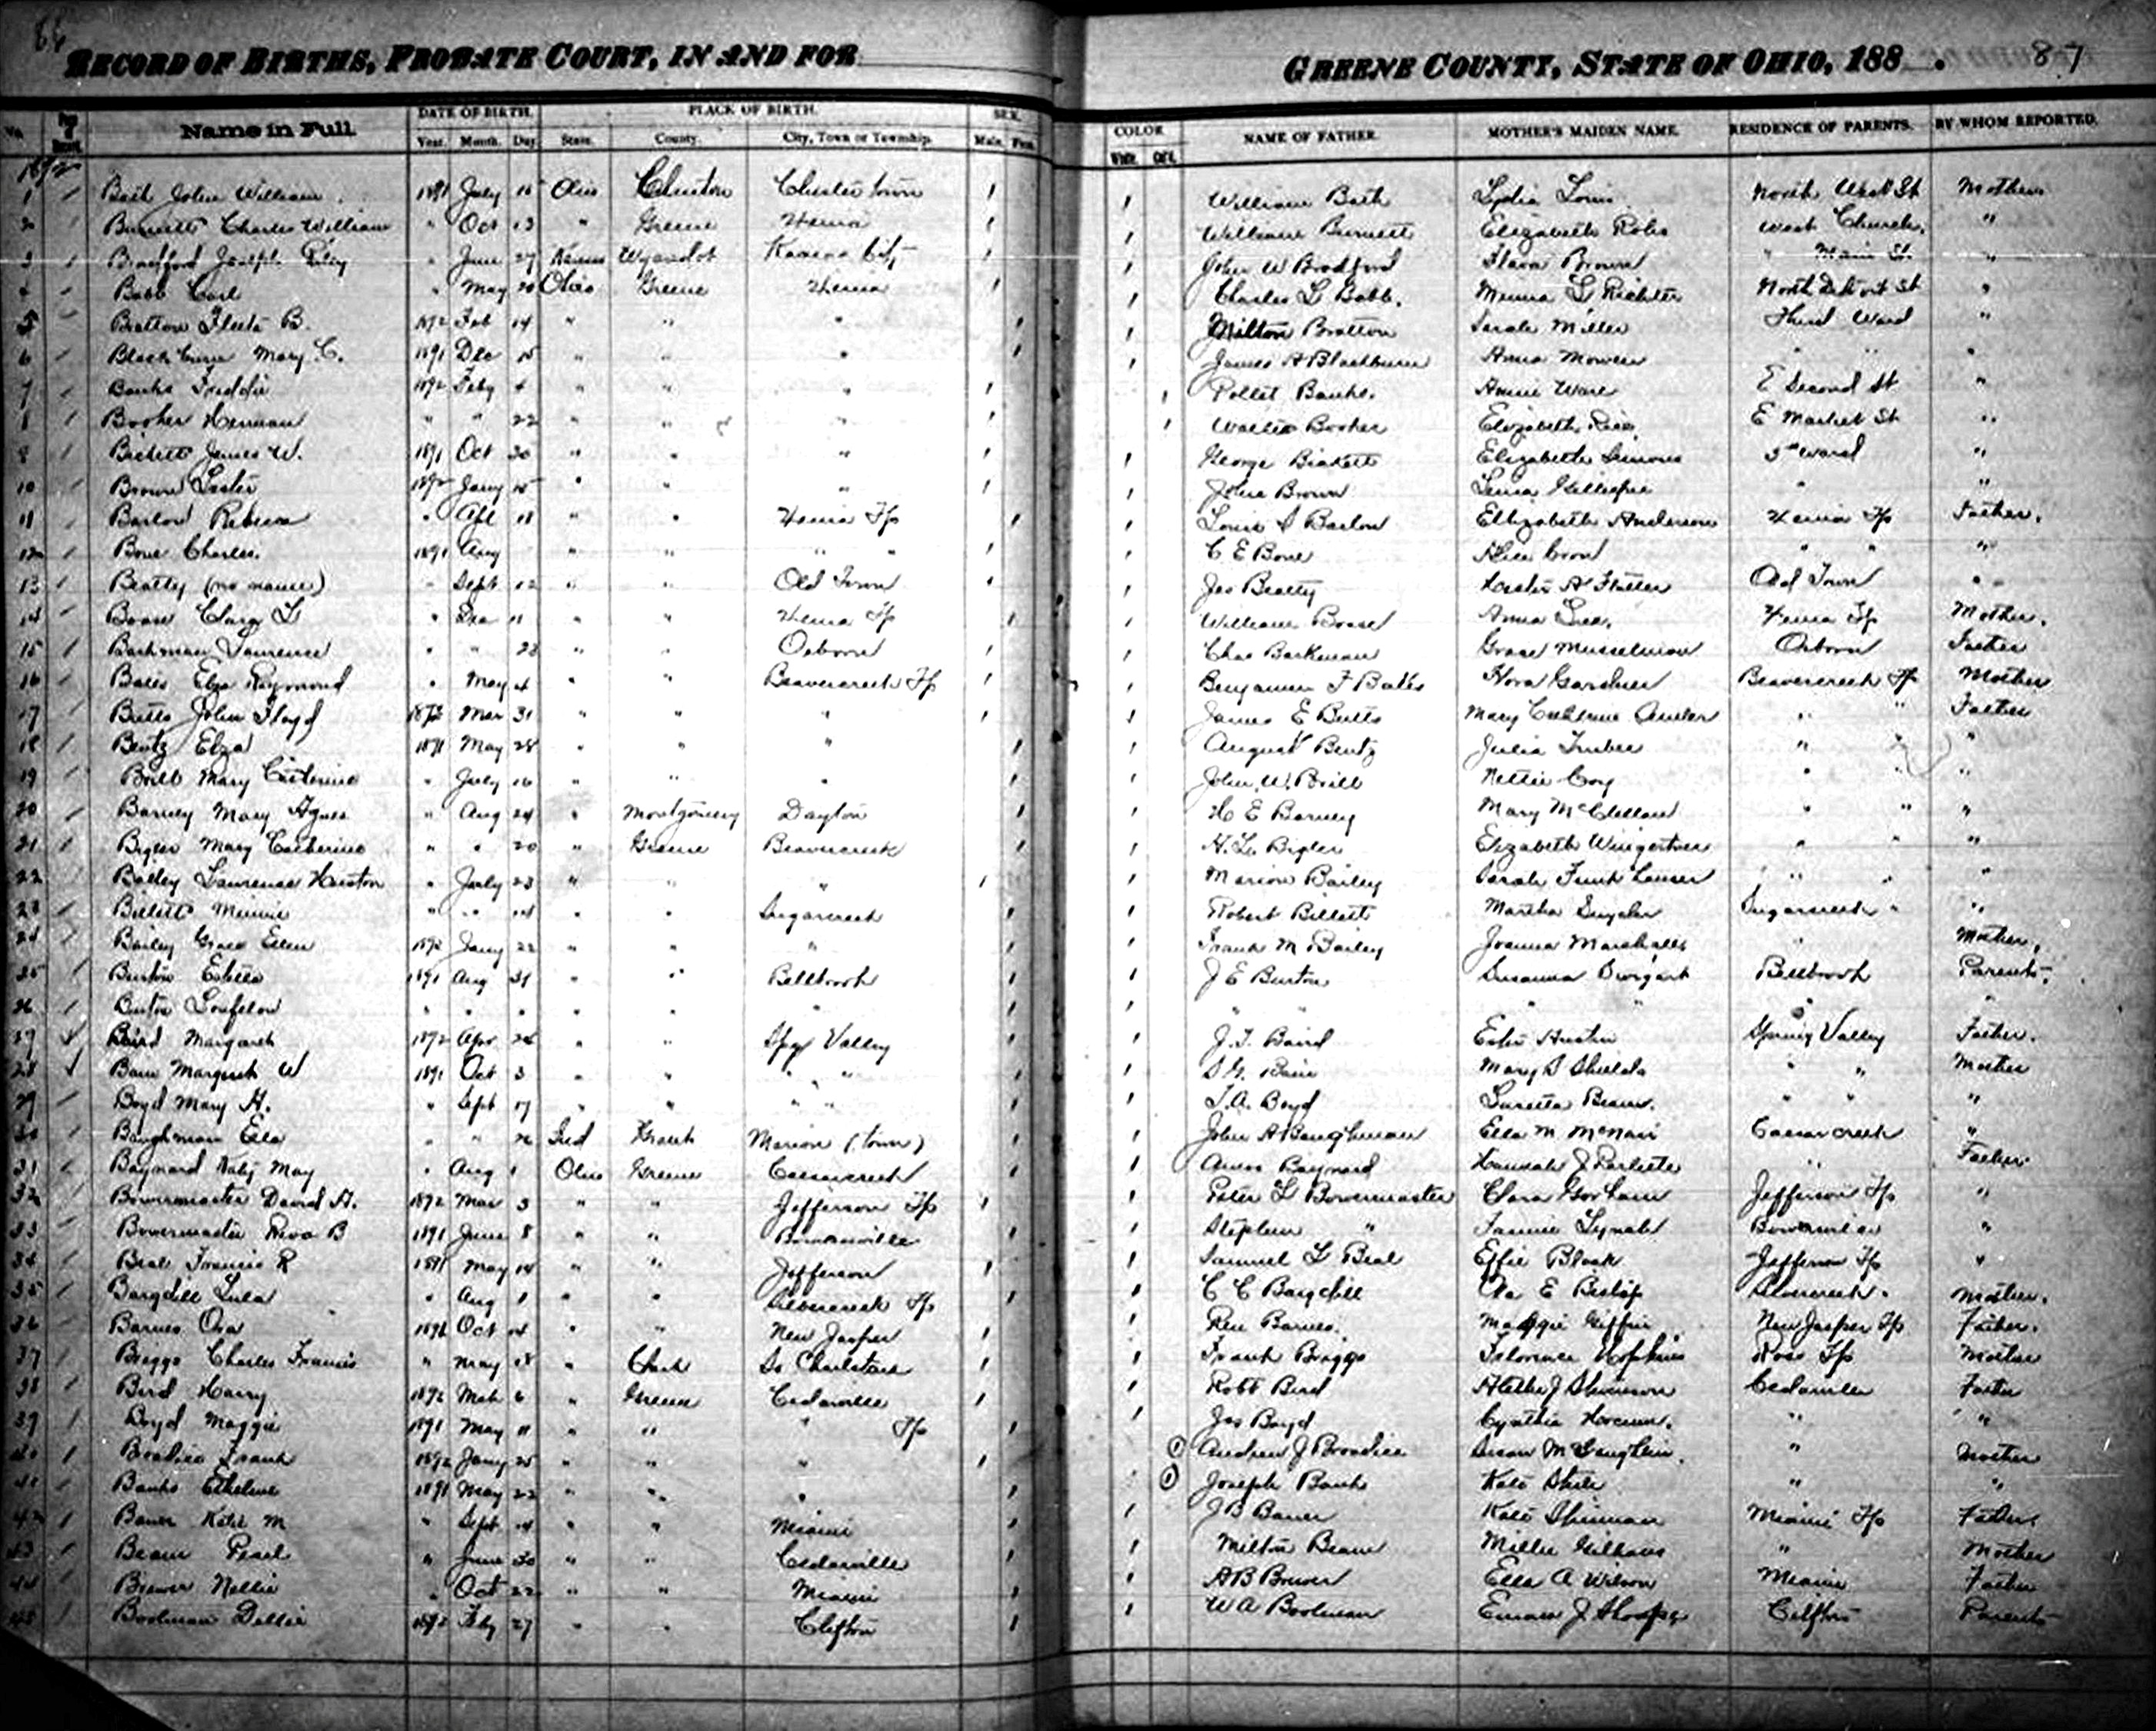 88
RECORD OF BIRTHS, PROBATE COURT, IN AND FOR GREENE COUNTY, STATE OF OHIO, 188 . 87
No. Name in Full DATE OF BIRTH. Year. Month. Day PLACE OF BIRTH. State. County. City, Town or Township. SEX. Male. Fem. COLOR White. Col'd. NAME OF FATHER. MOTHER'S MAIDEN NAME. RESIDENCE OF PARENTS. BY WHOM REPORTED.
1892
1 Bath John William 1891 July 15 Ohio Clinton Chester town William Bath Lydia Louis North West St Mother
2 Burnett Charles William " Oct 13 " Greene Xenia William Burnett Elizabeth West Church "
3 Bradford Joseph Riley " June 27 Kansas Wyandot Kansas City John W Bradford Flora Brown " Main St. "
4 Babb Carl " May 20 Ohio Greene Xenia Charles L Babb. Minna L Richter North Detroit St "
5 Bratton Fleeta B. 1892 Feb 14 " " " Milton Bratton Sarah Miller Third Ward "
6 Blackburn Mary C. 1891 Dec 15 " " " James A Blackburn Anna Mowrer " " "
7 Banks Freddie 1892 Feby 4 " " " Banks. Annie Ware E Second St "
8 Booker Herman " " 22 " " " Walter Booker Elizabeth E Market St "
9 Bickett James W. 1891 Oct 30 " " " George Bickett Elizabeth Simons 3rd Ward "
10 Brown Lester 1892 Jany 15 " " " John Brown Lena Gillispie " "
11 Barlow Rebecca " Apl 11 " " Xenia Tp Louis S Barlow Ellizabeth Anderson Xenia Tp Father.
12 Bone Charles. 1891 Aug " " " " C E Bone " " "
13 Beatty (no name) " Sept 12 " " Old Town Jas Beatty Old Town "
14 Boase L " Dec 11 " " Xenia Tp William Boase Anna Xenia Tp Mother.
15 Bachman Laurence " " 23 " " Osborn Chas Backman Grace Musselman Osborn Father
16 Bates Elza Raymond " May 4 " " Beavercreek Tp Benjamin F Bates Flora Gardner Beavercreek Tp Mother
17 Butts John Floyd 1892 Mar 31 " " " James E Butts Mary Catherine " " Father
18 Bentz Elza 1891 May 28 " " " August Bentz Julia " " "
19 Brill Mary Catherine " July 16 " " " John W. Brill Nettie Coy " " "
20 Barney Mary Agnes " Aug 24 " Montgomery Dayton H E Barney Mary McClellan " " "
21 Bigler Mary Catherine " " 20 " Greene Beavercreek H. L. Bigler Elizabeth Wingertner " " "
22 Bailey Laurence Heuston " July 23 " " " Marion Bailey Sarah Funk houser " " "
23 Billett Minnie " " 14 " " Sugarcreek Robert Billett Martha Snyder Sugarcreek " "
24 Bailey Grace Ellen 1892 Jany 22 " " " Frank M Bailey Joanna Marshall " Mother,
25 Burton Estella 1891 Aug 31 " " Bellbrook J E Burton Susanna Swigart Bellbrook Parents
26 Burton " " " " " " " " " " " "
27 Baird Margaret 1892 Apr 24 " " Spg Valley J. T. Baird Austin Spring Valley Father.
28 Bain Margaret W 1891 Oct 3 " " " " Bain Mary S Shields " " Mother
29 Boyd Mary H. " Sept 17 " " " " T. A. Boyd Luretta Beam. " " "
30 Baughman Ella " " 26 Ind Grant Marion (town) John A Baughman Ella M McNair Caesarcreek "
31 Baynard Katy May " Aug 1 Ohio Greene Caesarcreek Amos Baynard Hannah J " Father
32 Bowermaster David H. 1892 Mar 3 " " Jefferson Tp Peter L Bowermaster Clara Gorham Jefferson Tp "
33 Bowermaster B 1891 June 8 " " Bowersville Stephen " Fannie Bowersville "
34 Beal Francis R 1891 May 14 " " Jefferson Samuel L Beal Effie Black Jefferson Tp "
35 Bargdill Lula " Aug 1 " " Silvercreek Tp C C Bargdill E Bishop Silvercreek. Mother.
36 Barnes Ora 1891 Oct 14 " " New Jasper Barnes. Maggie Giffin New Jasper Tp Father.
37 Briggs Charles Francis " May 18 " Clark So Charleston Frank Briggs Florence Hopkins Ross Tp Mother
38 Bird Harry 1892 Mch 6 " Greene Cedarville Robt Bird J Cedarville Father
39 Boyd Maggie 1891 May 11 " " " Tp Jas Boyd Cynthia " "
40 Broadice Frank 1892 Jany 25 " " " Andrew J Broadice Susan McLaughlin. " Mother
41 Banks Etheline 1891 May 22 " " " Joseph Banks Kate " "
42 Bauer Katie M " Sept 14 " " Miami J B Bauer Kate Miami Tp Father.
43 Beam Pearl " June 30 " " Cedarville Milton Beam Millie " Mother
44 Brewer Nellie " Oct 22 " " Miami A B Brewer Ella A Wilson Miami Father
45 Boolman Dellie 1892 Feby 27 " " Clifton W A Boolman Emma J Clifton Parents